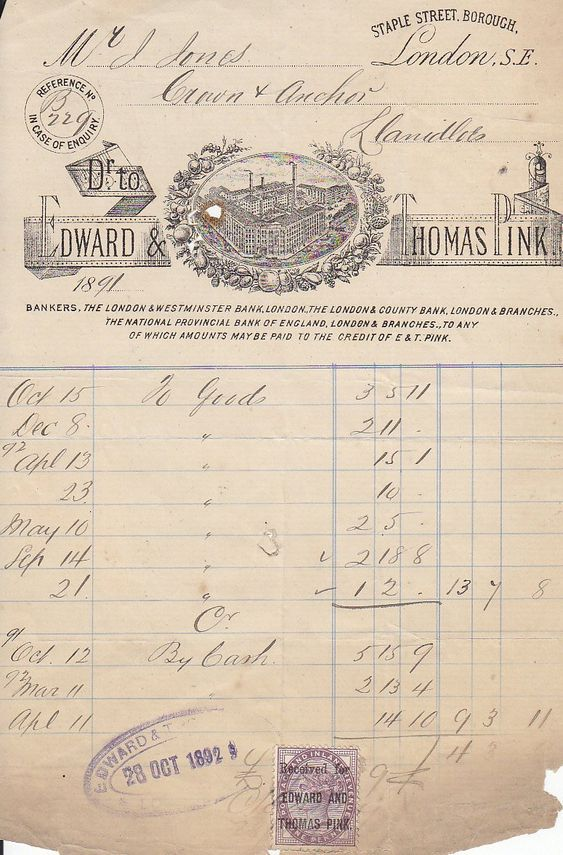 STAPLE STREET, BOROUGH,
London, S.E.
Mr J Jones
Crown & Anchor
Llanidloes
REFERENCE No
B 229
IN CASE OF ENQUIRY.
Dr to
EDWARD & THOMAS PINK
1891
BANKERS, THE LONDON & WESTMINSTER BANK, LONDON, THE LONDON & COUNTY BANK, LONDON & BRANCHES.,
THE NATIONAL PROVINCIAL BANK OF ENGLAND, LONDON & BRANCHES., TO ANY
OF WHICH AMOUNTS MAY BE PAID TO THE CREDIT OF E & T. PINK.
Oct 15 To Goods 3 5 11
Dec 8 " 2 11 .
92
Apl 13 " 15 1
23 " 10 .
May 10 " 2 5 .
Sep 14 " ✓ 2 18 8
21. " ✓ 1 2 . 13 7 8
Cr
91
Oct. 12 By Cash. 5 15 9
92
Mar 11 " 2 13 4
Apl 11 14 10 9 3 11
4 3
EDWARD & T
28 OCT 1892
Received for
EDWARD AND
THOMAS PINK